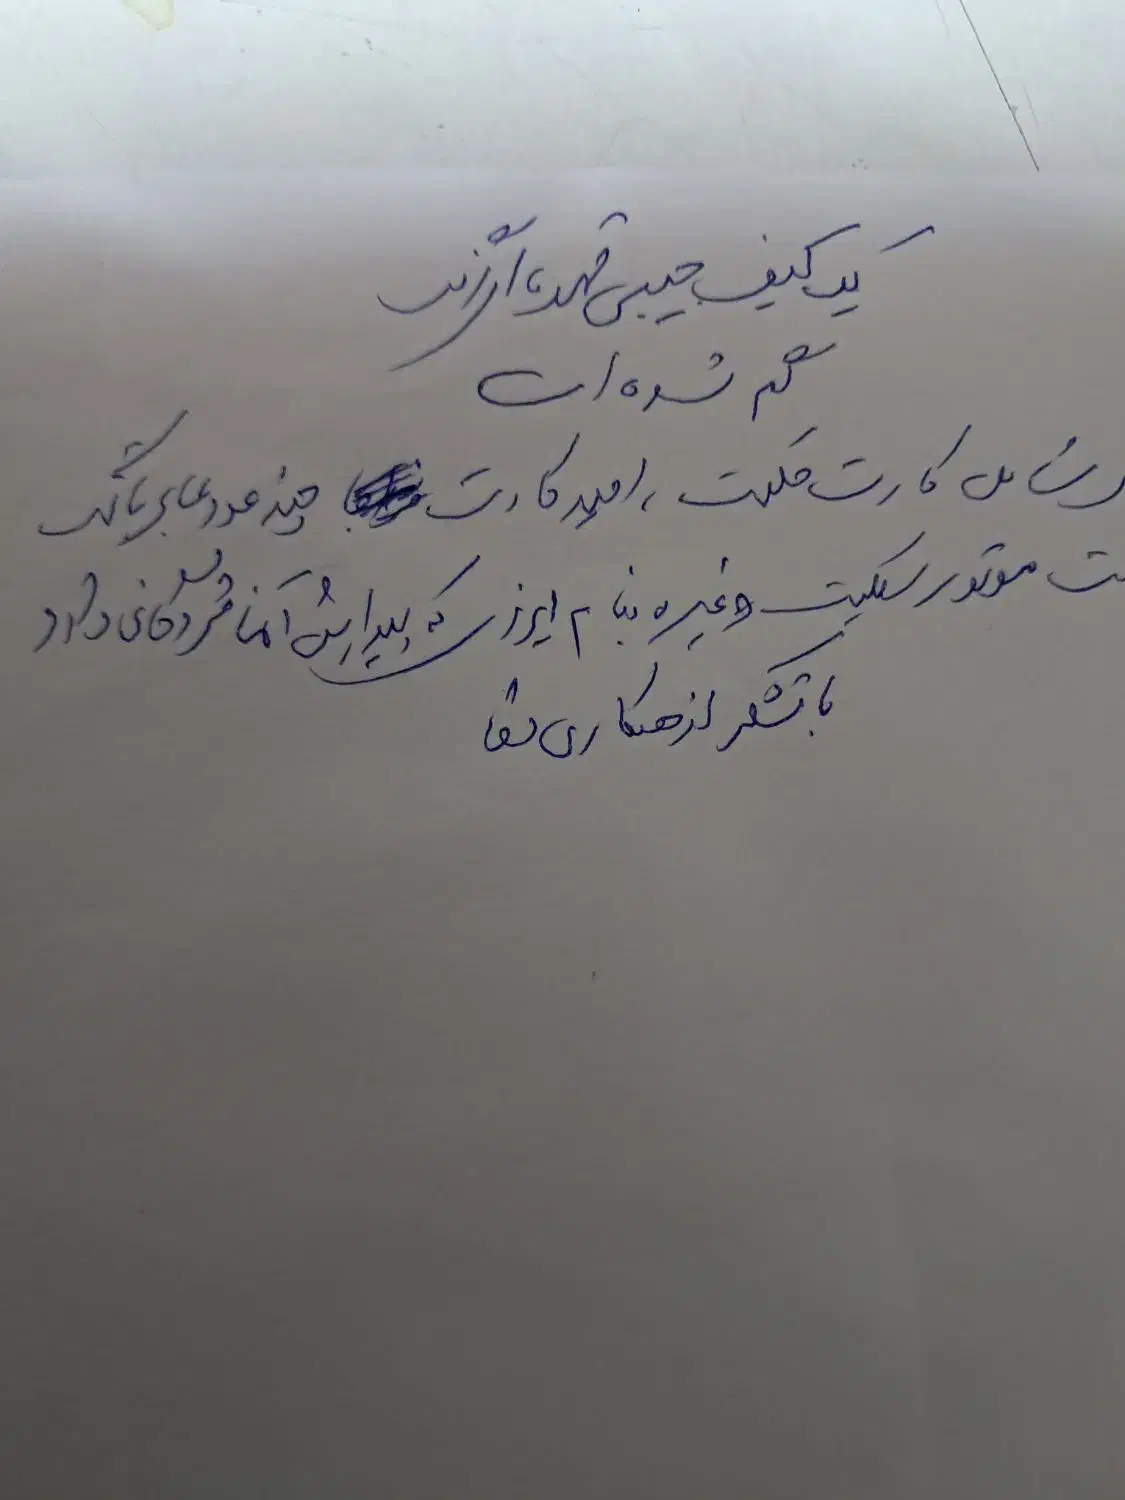 یک کیف جیبی قهوه‌ای رنگ
گم شده است
شامل کارت ملت ، امید کارت چند عدد عابر بانک
موتور سیکلت و غیره بنام که پیدایش آنها مژدگانی دارد
با تشکر از همکاری شما